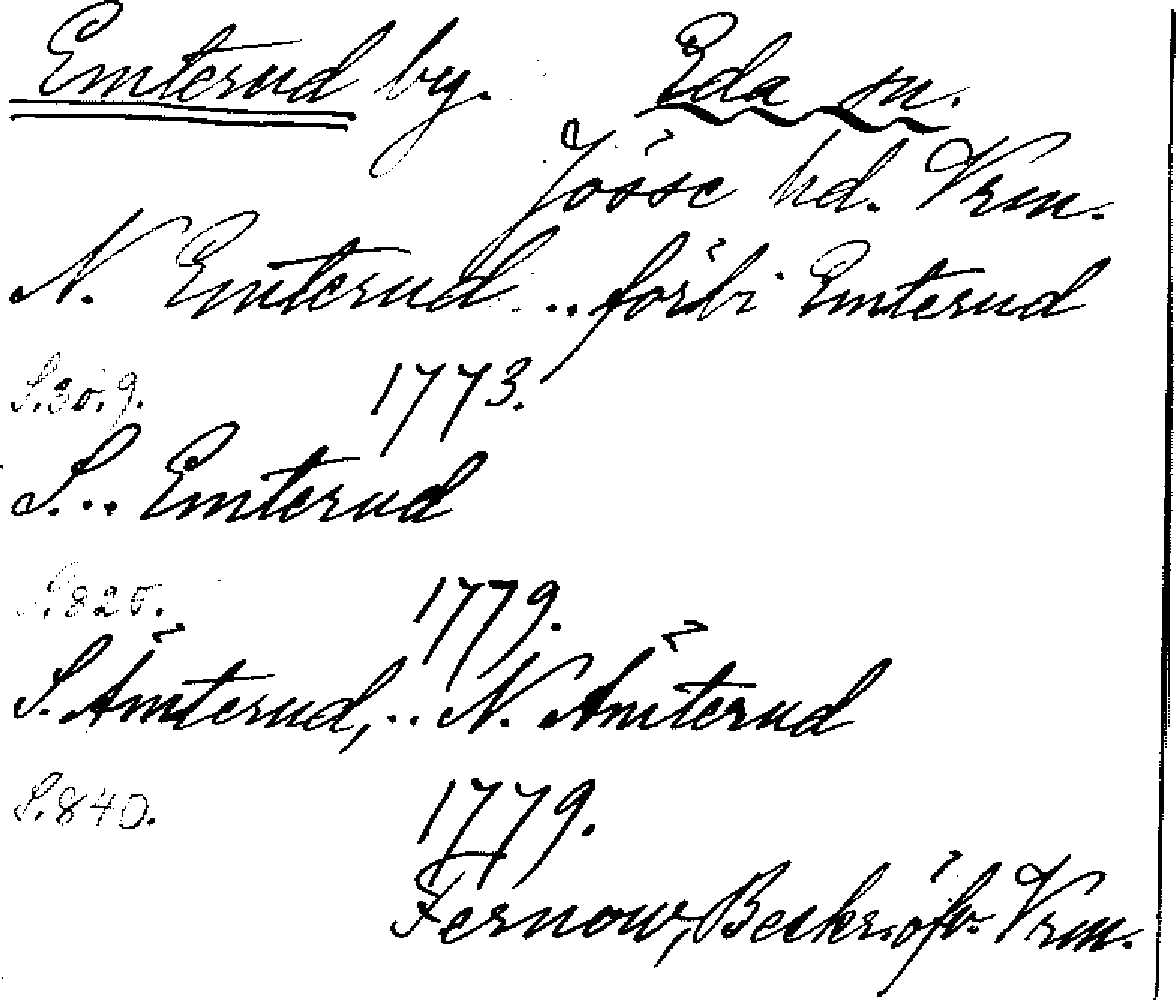 Emterud by. Eda sn.
Jösse hd. Vrm.
N. Emterud... förbi Emterud
S. 30. 9. 1773.
S... Emterud
S. 825. 1779.
S. Ämterud,.. N. Ämterud
S. 840. 1779.
Fernow, Beskr. öfv. Vrm.